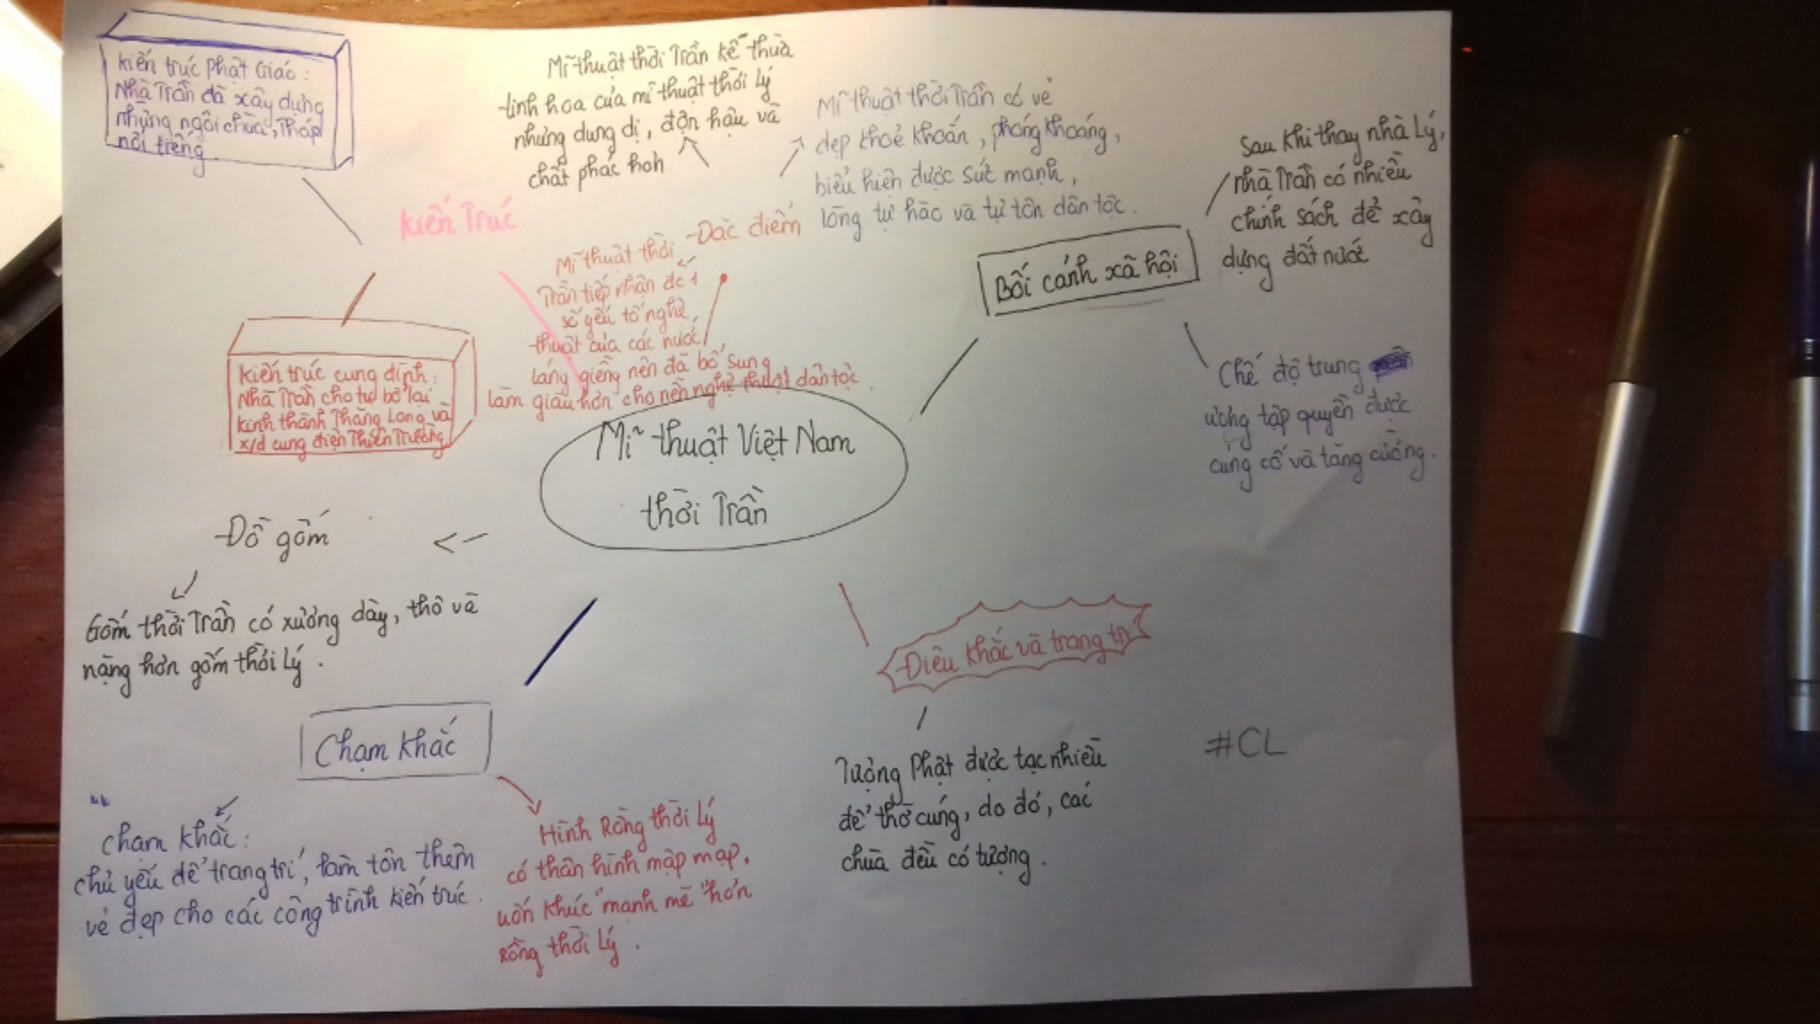 Kiến trúc Phật Giáo:
Nhà Trần đã xây dựng
những ngôi chùa, tháp
nổi tiếng
Mĩ thuật thời Trần kế thừa
tinh hoa của mĩ thuật thời Lý
nhưng dung dị, đôn hậu và
chất phác hơn
Mĩ thuật thời Trần có vẻ
đẹp khoẻ khoắn, phóng khoáng,
biểu hiện được sức mạnh,
lòng tự hào và tự tôn dân tộc.
Sau khi thay nhà Lý,
nhà Trần có nhiều
chính sách để xây
dựng đất nước
Kiến Trúc
Đặc điểm
Mĩ thuật thời
Trần tiếp nhận đc 1
số yếu tố nghệ
thuật của các nước
láng giềng nên đã bổ sung
làm giàu hơn cho nền nghệ thuật dân tộc.
Bối cảnh xã hội
Chế độ trung
ương tập quyền được
củng cố và tăng cường.
Kiến trúc cung đình:
Nhà Trần cho tu bổ lại
kinh thành Thăng Long và
x/d cung điện Thiên Trường
Mĩ thuật Việt Nam
thời Trần
Đồ gốm
Gốm thời Trần có xương dày, thô và
nặng hơn gốm thời Lý.
Điêu khắc và trang trí
Tượng Phật được tạc nhiều
để thờ cúng, do đó, các
chùa đều có tượng.
#CL
Chạm khắc
Chạm khắc:
chủ yếu để trang trí, làm tôn thêm
vẻ đẹp cho các công trình kiến trúc.
Hình Rồng thời Lý
có thân hình mập mạp,
uốn khúc "mạnh mẽ" hơn
Rồng thời Lý.